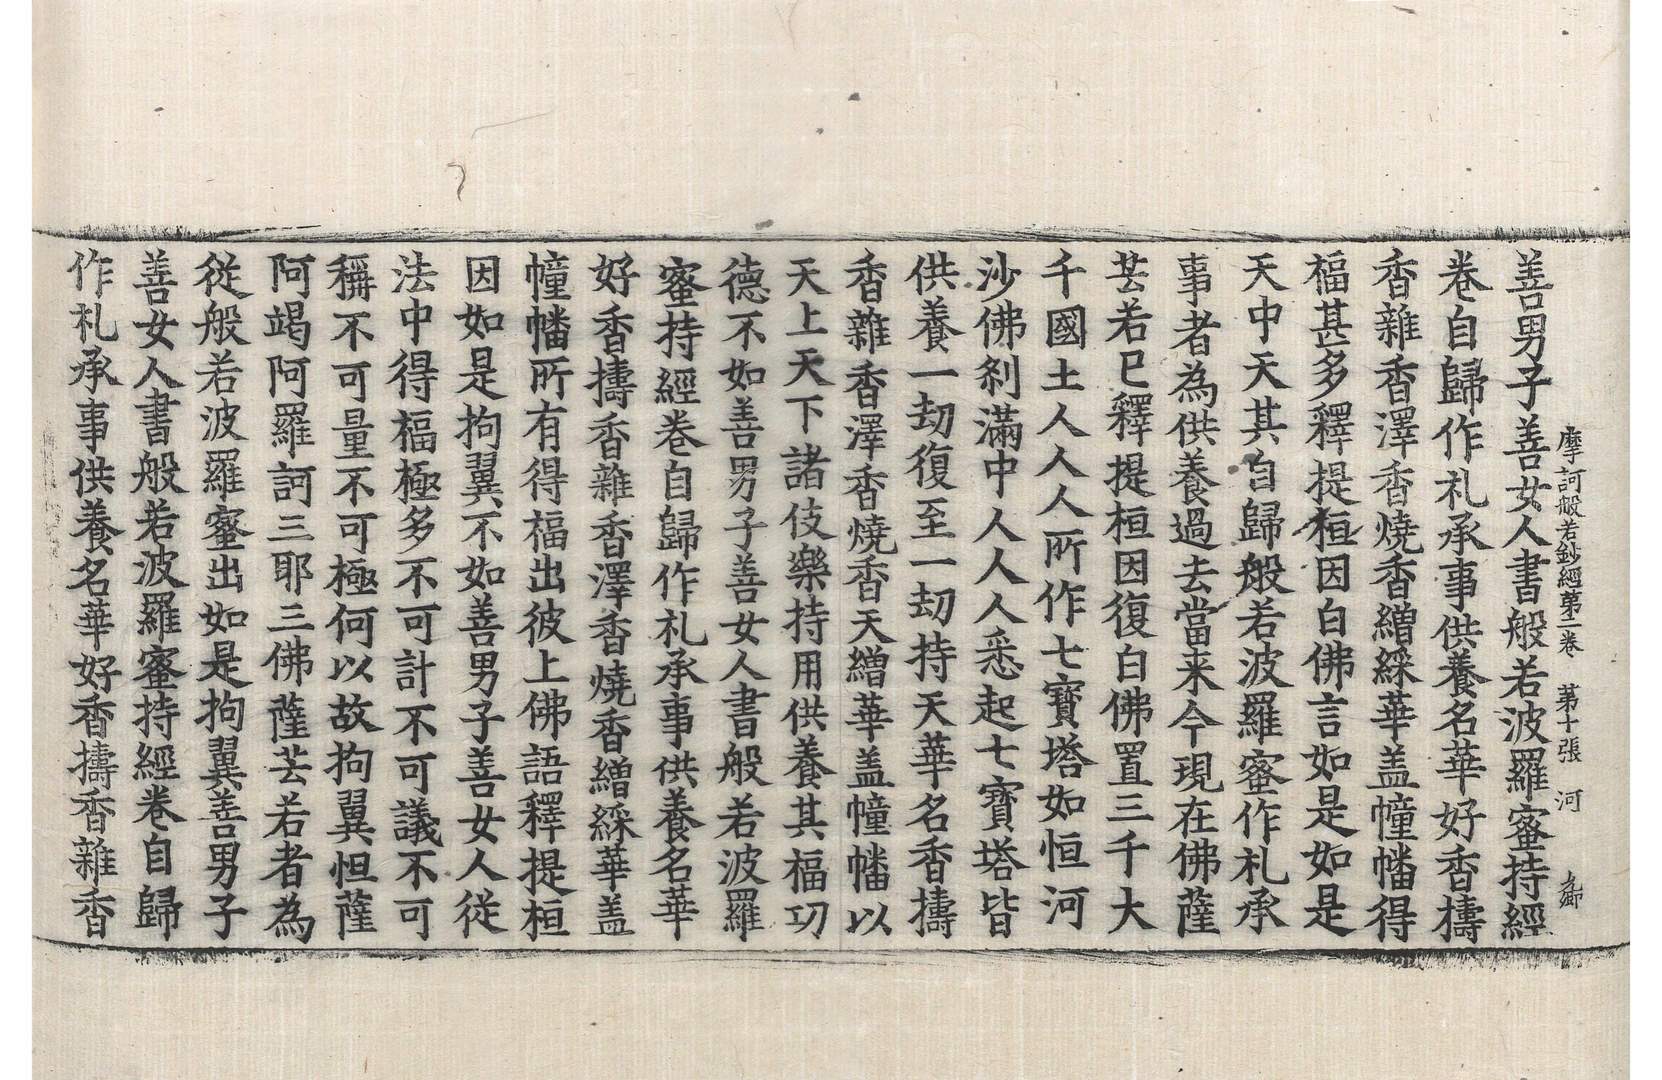 摩訶般若鈔經第二卷　第十張　河
善男子善女人書般若波羅蜜持經
卷自歸作礼承事供養名華好香擣
香雜香澤香燒香繒綵華盖幢幡得
福甚多釋提桓因白佛言如是如是
天中天其自歸般若波羅蜜作礼承
事者為供養過去當来今現在佛薩
芸若已釋提桓因復白佛置三千大
千國土人人人所作七寶塔如恒河
沙佛剎滿中人人人悉起七寶塔皆
供養一劫復至一劫持天華名香擣
香雜香澤香燒香天繒華盖幢幡以
天上天下諸伎樂持用供養其福功
德不如善男子善女人書般若波羅
蜜持經卷自歸作礼承事供養名華
好香擣香雜香澤香燒香繒綵華盖
幢幡所有得福出彼上佛語釋提桓
因如是拘翼不如善男子善女人從
法中得福極多不可計不可議不可
稱不可量不可極何以故拘翼怛薩
阿竭阿羅訶三耶三佛薩芸若者為
從般若波羅蜜出如是拘翼善男子
善女人書般若波羅蜜持經卷自歸
作礼承事供養名華好香擣香雜香